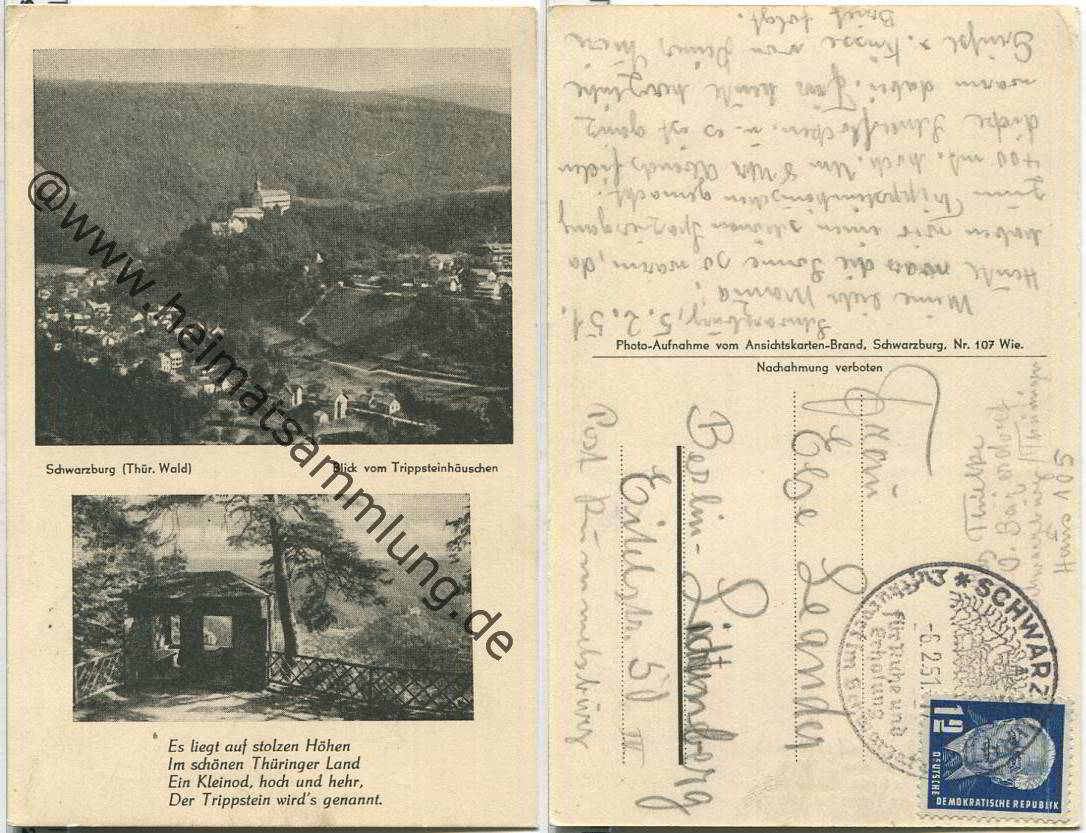 @www.heimatsammlung.de
Schwarzburg (Thür. Wald)
Blick vom Trippsteinhäuschen
Es liegt auf stolzen Höhen
Im schönen Thüringer Land
Ein Kleinod, hoch und hehr,
Der Trippstein wird's genannt.
Schwarzburg, 5.2.51.
Meine liebe Mama,
Heute war die Sonne so warm, da
haben wir einen schönen Spaziergang
zum Trippsteinhäuschen gemacht.
400 mt. hoch. Um 8 Uhr Abends fielen
dicke Schneeflocken. u. es ist ganz
warm dabei. Für heute herzliche
Grüße u. Küsse von Deiner
Brief folgt.
Photo-Aufnahme vom Ansichtskarten-Brand, Schwarzburg, Nr. 107 Wie.
Nachahmung verboten
Thüringen
Haus 105
Else Leander
Berlin-Lichtenberg
Eitelstr. 51 III
Post Rummelsburg
SCHWARZ
-6.2.51
für Ruhe und
Erholung
12
DEUTSCHE
DEMOKRATISCHE REPUBLIK